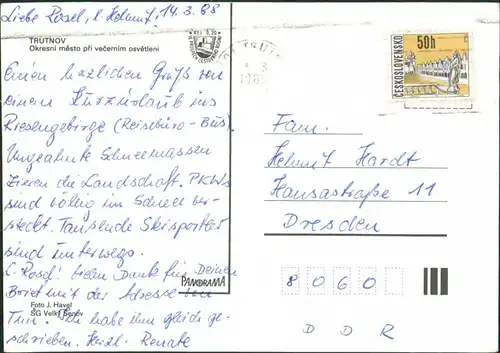 Liebe Rosel, l. Helmut, 14.3.88
TRUTNOV
Okresní město při večerním osvětlení
Kčs 0,30
Einen herzlichen Gruß von
einem Kurzurlaub ins
Riesengebirge (Reisebüro-Bus).
Ungeahnte Schneemassen
zieren die Landschaft. PKWs
sind völlig im Schnee ver-
steckt. Tausende Skisportler
sind unterwegs.
L. Rosel! Vielen Dank für Deinen
Brief mit der Adresse von
Ich habe ihm gleich ge-
schrieben. Herzl. Renate
PANORAMA
Foto J. Havel
SG Velký Šenov
ČESKOSLOVENSKO
50h
Fam.
Helmut Hardt
Hansastraße 11
Dresden
8060
DDR